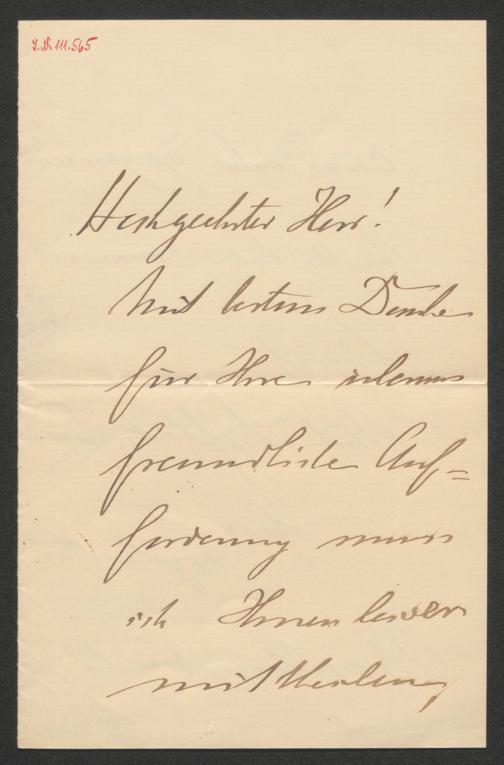 I.N. 111.565
Hochgeehrter Herr!
Mit bestem Danke
für Ihre überaus
freundliche Auf=
forderung muss
ich Ihnen leider
mittheilen,